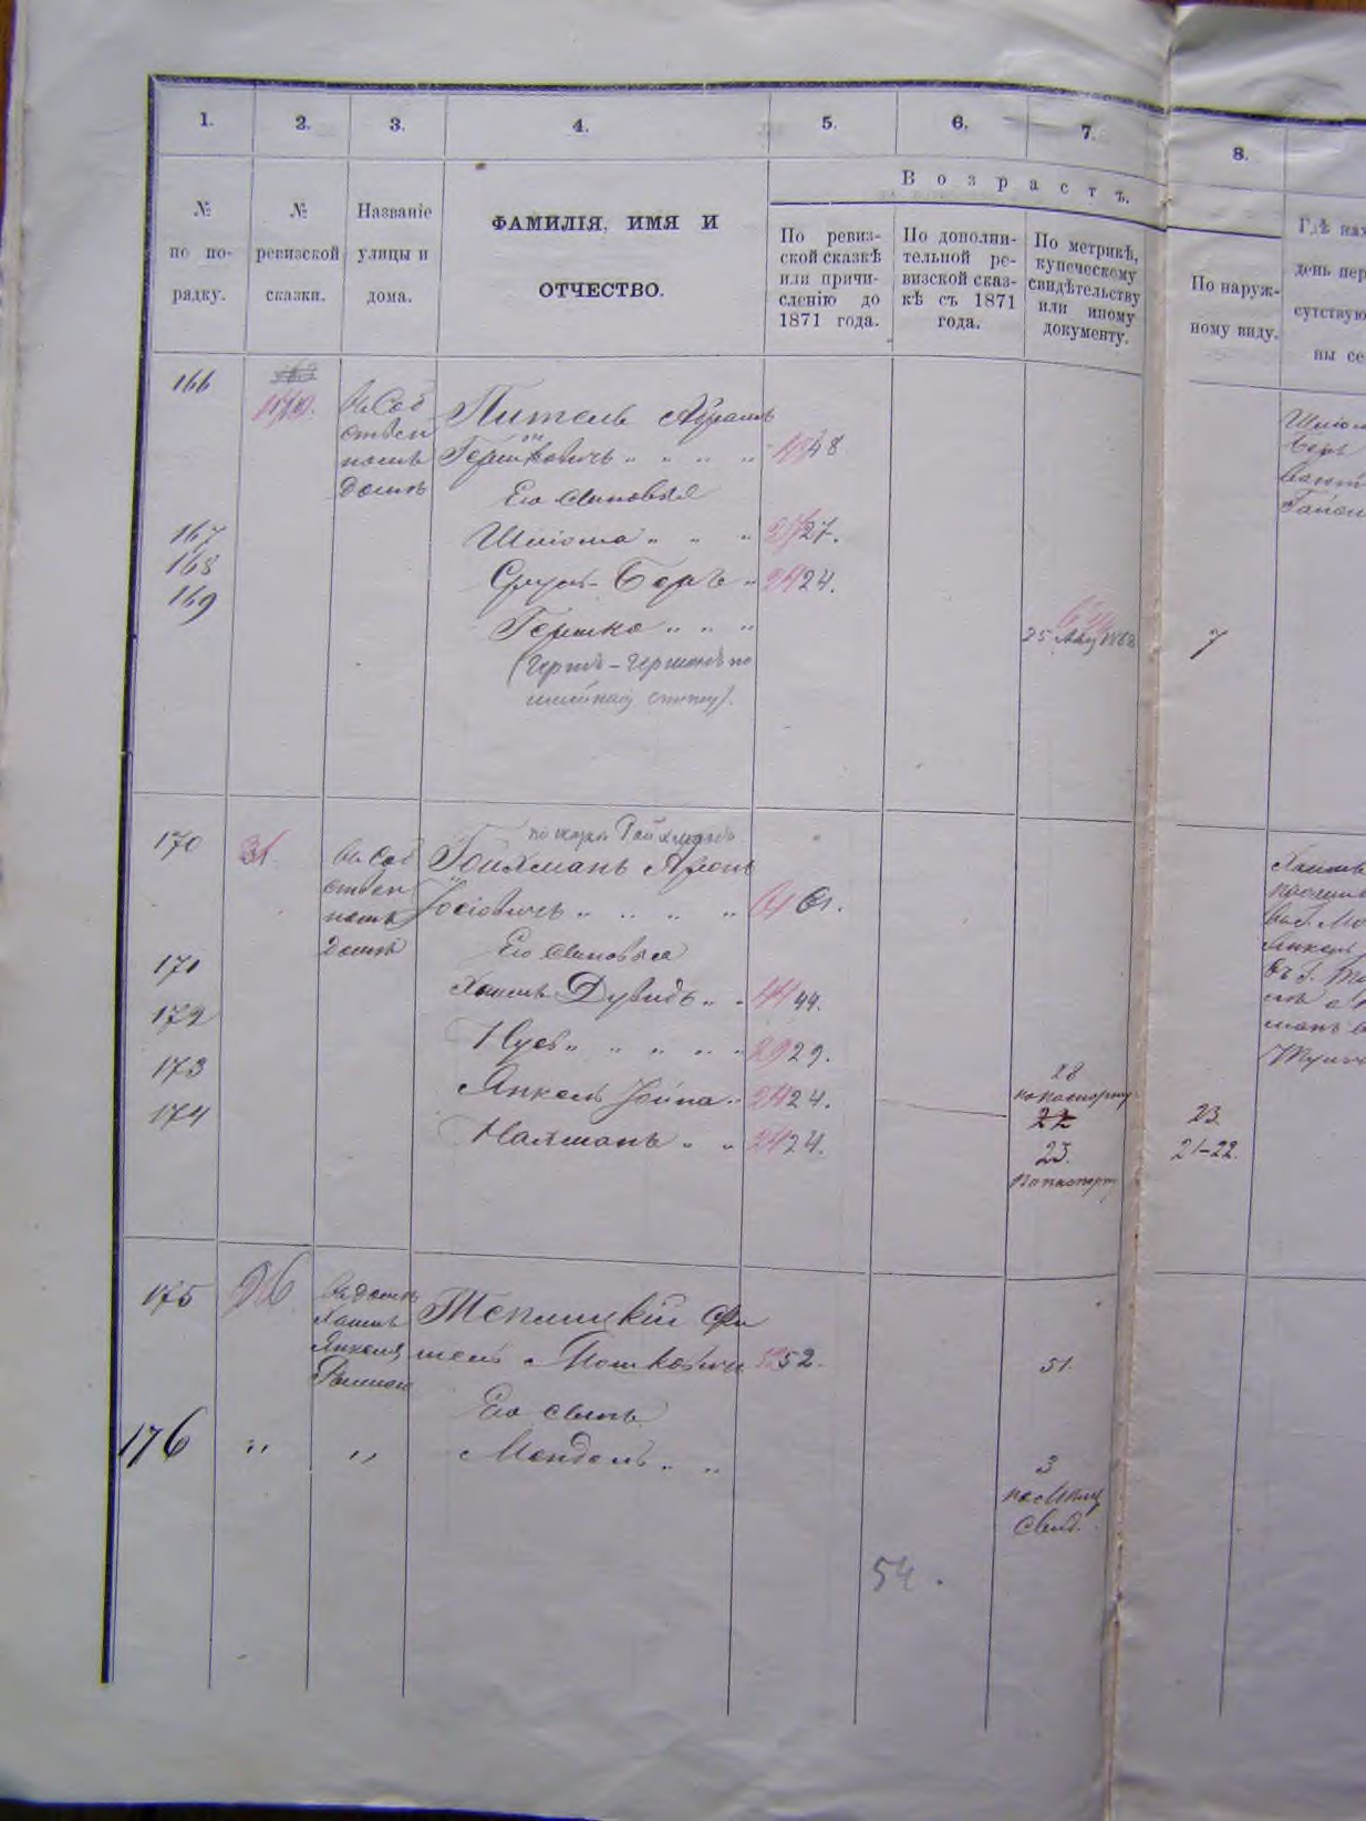 1. 2. 3. 4. 5. 6. 7. 8.
Возрастъ.
№ по по-
рядку.
№ ревизской
сказки.
Названіе
улицы и
дома.
ФАМИЛІЯ, ИМЯ И
ОТЧЕСТВО.
По ревиз-
ской сказкѣ
или причи-
сленію до
1871 года.
По дополни-
тельной ре-
визской сказ-
кѣ съ 1871
года.
По метрикѣ,
купеческому
свидѣтельству
или иному
документу.
По наруж-
ному виду.
Гдѣ нах
день пер
сутствую
ны се
166
Въ Соб
ствен
номъ
домѣ
Питель Абрамъ
Гершковичъ " " " " 48
Его сыновья
167 Шліома " " " 27.
168 Сруль-Беръ " 24.
169 Гершко " " " 25 Авг 1868 7
(Герть-Гершонъ по
170 31
Въ Соб
ствен
номъ
домѣ
Гойхманъ Аронъ
Іосіовичъ " " " " 61.
Его сыновья
171 Хаимъ Дувидъ " " 44.
172 Нусъ " " " " " 29.
173 Янкель Іойна " 24. 28
по паспорту
22 23
174 Нахманъ " " 24. 23. 21-22.
по паспорту
175 26
Въ домѣ
Хаима
Янкеля
Теплицкій Фи
шель Мошковичъ 52. 51.
Его сынъ
176 " " Мендель " " 3
свид.
54.